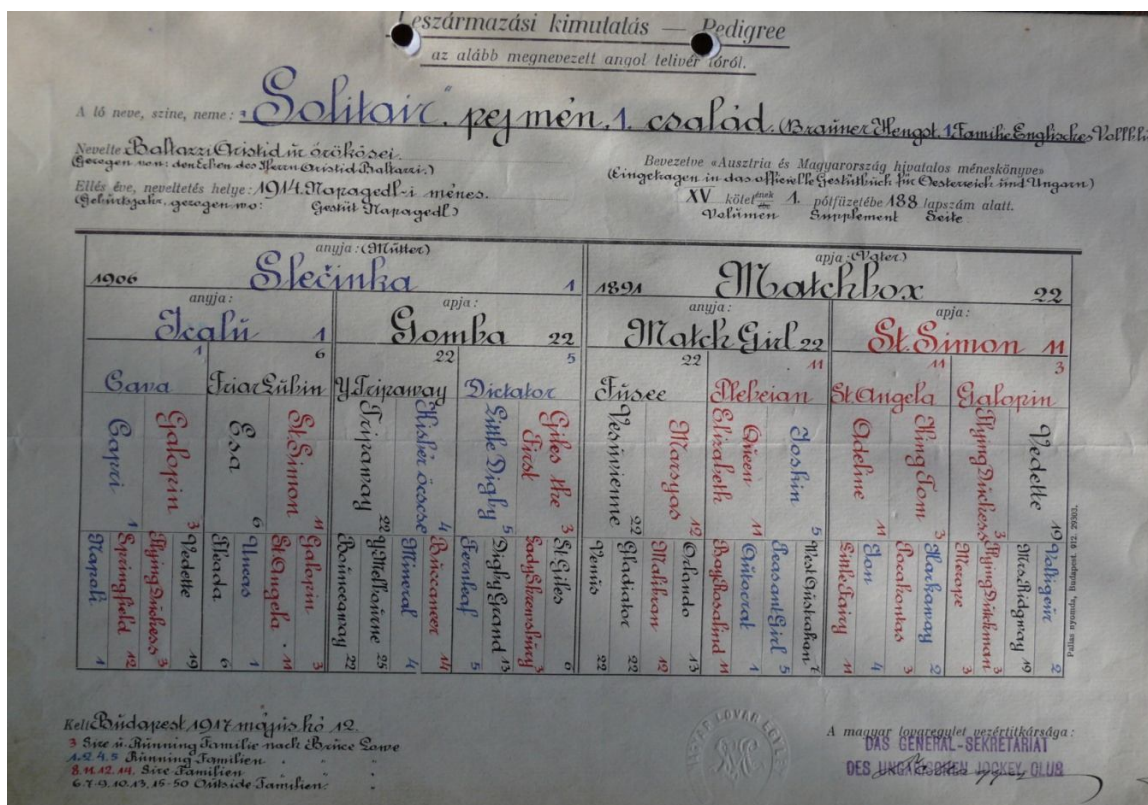 Leszármazási kimutatás — Pedigree
az alább megnevezett angol telivér lóról.
A ló neve, szine, neme: "Solitair" pejmén. 1. család. (Brauner Hengst. 1 Familie Englisches
Nevelte Baltazzi Aristid úr örökösei.
(Gezogen von: den Erben des Herrn Aristid Baltazzi.)
Ellés éve, neveltetés helye: 1914. Napagedl-i ménes.
(Geburtsjahr, gezogen wo: Gestüt Napagedl)
Bevezetve «Ausztria és Magyarország hivatalos méneskönyve»
(Eingetragen in das officielle Gestütbuch für Oesterreich und Ungarn)
XV kötetének 1. pótfüzetébe 188 lapszám alatt.
Volumen Supplement Seite
anyja: (Mutter) apja: (Vater)
1906 Slečinka 1 1891 Matchbox 22
anyja: apja: anyja: apja:
Icalu 1 Gomba 22 Match Girl 22 St. Simon 11
1 6 22 5 22 11 11 3
Cava Friar Lubin Y. Tripaway Dictator Fusee Plebeian St Angela Galopin
Capri 1
Galopin 3
Esa 6
St. Simon 11
Tripaway 22
Kisbér öcscse 4
Little Digby 5
Giles the First 3
Vesuvienne 22
Marsyas 12
Queen Elizabeth 11
Joskin 5
Adeline 11
King Tom 3
Flying Duchess 3
Vedette 19
Napoli 1
Springfield 12
Flying Duchess 3
Vedette 19
Fkada 6
Uncas 1
St Angela 11
Galopin 3
Bounceaway 22
Y. Melbourne 25
Mineral 4
Buccaneer 14
Fernleaf 5
Digby Grand 13
Lady Shrewsbury 3
St Giles 6
Venus 22
Gladiator 22
Malibran 12
Orlando 13
Bay Rosalind 11
Autocrat 1
Peasant Girl 5
West Australian 7
Little Fairy 11
Ion 4
Pocahontas 3
Harkaway 2
Merope 3
Flying Dutchman 3
Mrs Ridgway 19
Voltigeur 2
Kelt Budapest 1917 május hó 12.
3 Sire u. Running Familie nach Bruce Lowe
1.2.4.5 Running Familien
8.11.12.14. Sire Familien
6.7.9.10.13.15-50 Outside Familien.
A magyar lovaregylet vezértitkársága:
DAS GENERAL-SEKRETARIAT
DES UNGARISCHEN JOCKEY CLUB